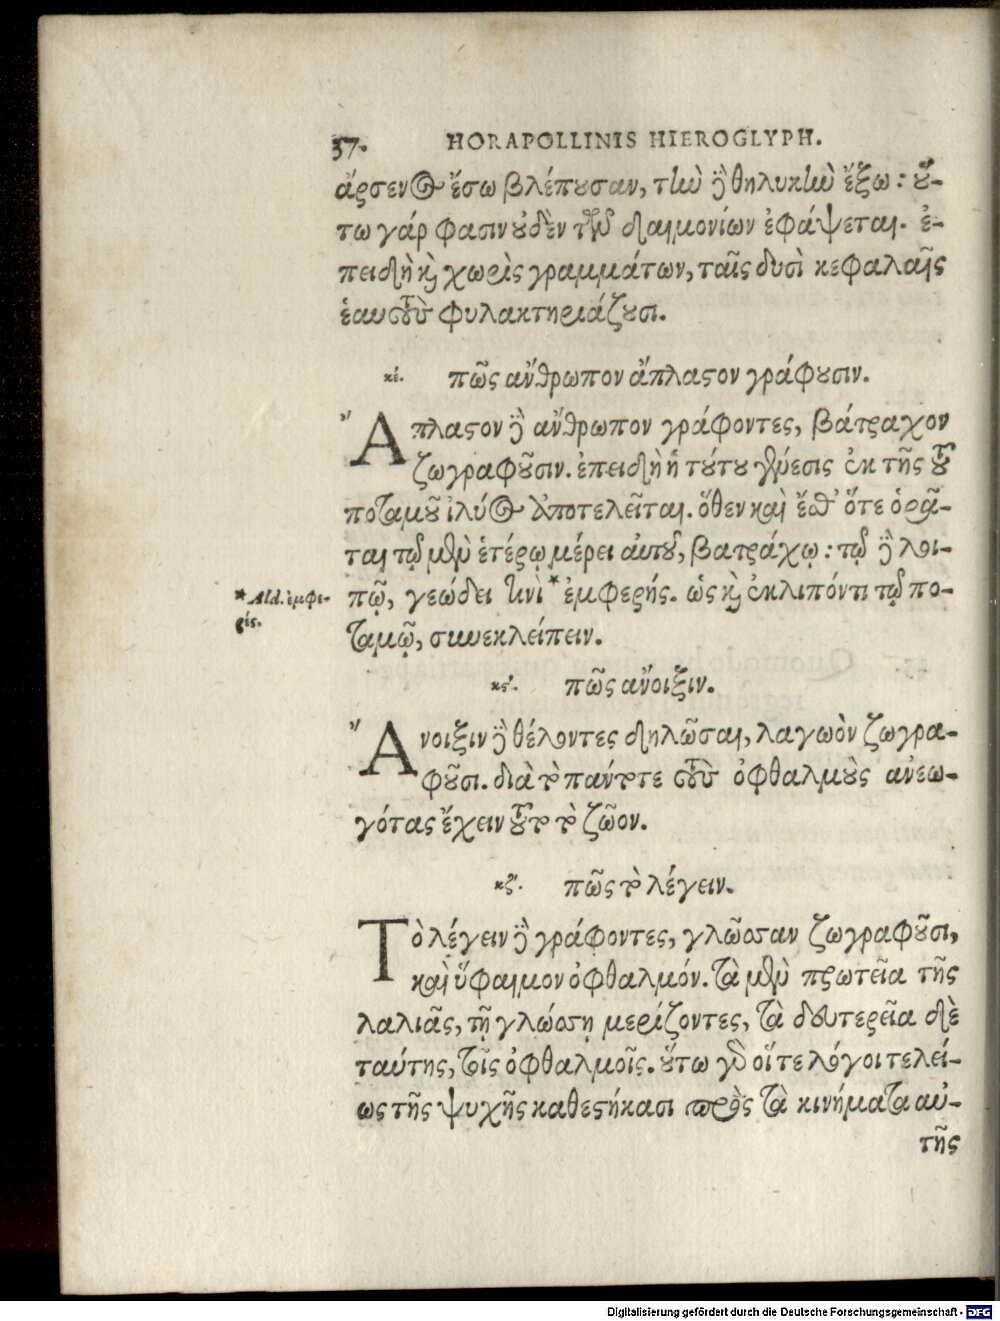 37. HORAPOLLINIS HIEROGLYPH.
ἄρσενος ἔσω βλέπουσαν, τὴν δὲ θηλυκὴν ἔξω: οὕ-
τω γάρ φασιν οὐδὲν τῶν δαιμονίων ἐφάψεται. ἐ-
πειδὴ καὶ χωρὶς γραμμάτων, ταῖς δυσὶ κεφαλαῖς
ἑαυτοὺς φυλακτηριάζουσι.
κέ. πῶς ἄνθρωπον ἄπλαστον γράφουσιν.
Ἄπλαστον δὲ ἄνθρωπον γράφοντες, βάτραχον
ζωγραφοῦσιν. ἐπειδὴ ἡ τούτου γένεσις ἐκ τῆς τοῦ
ποταμοῦ ἰλύος ἀποτελεῖται. ὅθεν καὶ ἔσθ' ὅτε ὁρᾶ-
ται τῷ μὲν ἑτέρῳ μέρει αὐτοῦ, βατράχῳ: τῷ δὲ λοι-
πῷ, γεώδει τινὶ * ἐμφερής. ὡς καὶ ἐκλιπόντι τῷ πο-
ταμῷ, συνεκλείπειν.
* Ald. ἐμφε-
ρίς.
κς'. πῶς ἄνοιξιν.
Ἄνοιξιν δὲ θέλοντες δηλῶσαι, λαγωὸν ζωγρα-
φοῦσι. διὰ τὸ πάντοτε τοὺς ὀφθαλμοὺς ἀνεω-
γότας ἔχειν τοῦτο τὸ ζῶον.
κζ'. πῶς τὸ λέγειν.
Τὸ λέγειν δὲ γράφοντες, γλῶσσαν ζωγραφοῦσι,
καὶ ὕφαιμον ὀφθαλμόν. τὰ μὲν πρωτεῖα τῆς
λαλιᾶς, τῇ γλώσσῃ μερίζοντες, τὰ δευτερεῖα δὲ
ταύτης, τοῖς ὀφθαλμοῖς. οὕτω γὰρ οἵ τε λόγοι τελεί-
ως τῆς ψυχῆς καθεστήκασι πρὸς τὰ κινήματα αὐ-
τῆς
Digitalisierung gefördert durch die Deutsche Forschungsgemeinschaft - DFG